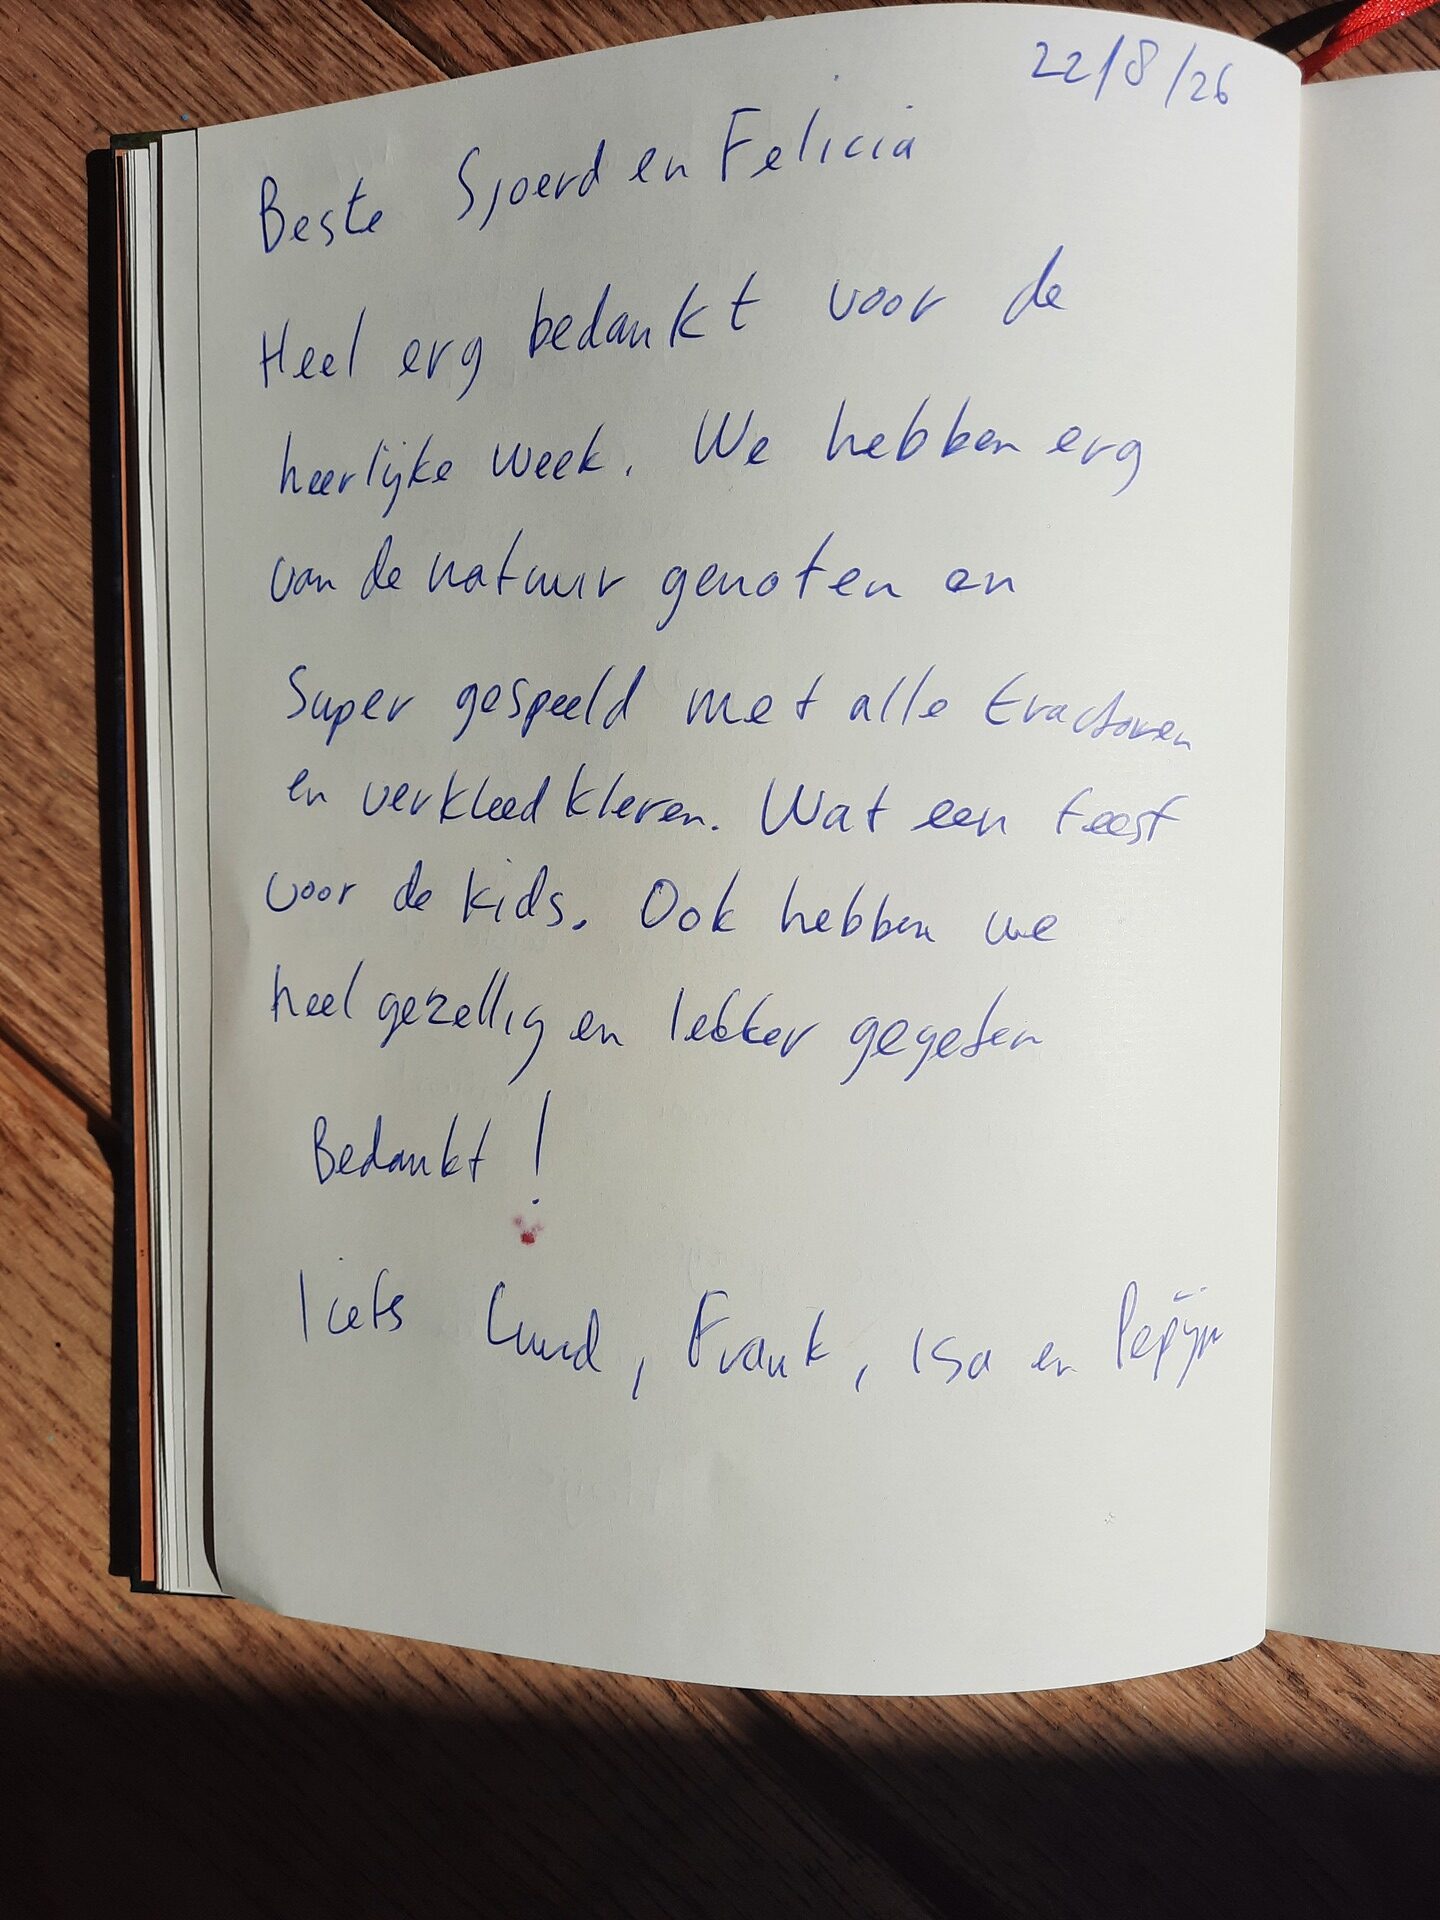 22/8/26
Beste Sjoerd en Felicia
Heel erg bedankt voor de
heerlijke week. We hebben erg
van de natuur genoten en
Super gespeeld met alle tractoren
en verkleed kleren. Wat een feest
voor de kids. Ook hebben we
heel gezellig en lekker gegeten
Bedankt!
liefs , Frank, Isa en Pepijn